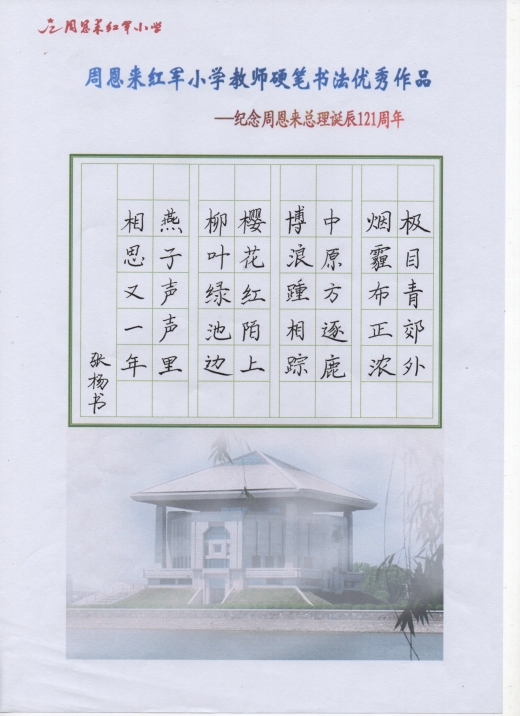 周恩来红军小学
周恩来红军小学教师硬笔书法优秀作品
—纪念周恩来总理诞辰121周年
极目青郊外
烟霾布正浓
中原方逐鹿
博浪踵相踪
樱花红陌上
柳叶绿池边
燕子声声里
相思又一年
张杨书